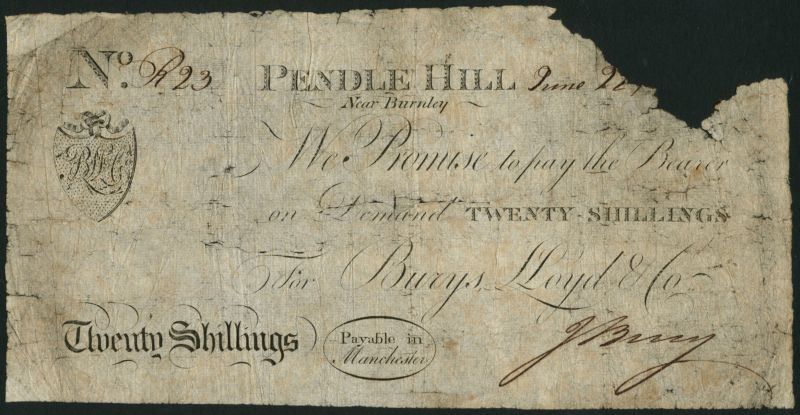 No. R23 PENDLE HILL June
Near Burnley
We Promise to pay the Bearer
on Demand TWENTY SHILLINGS
For Burys, LLoyd & Co
Twenty Shillings
Payable in
Manchester
J Bury